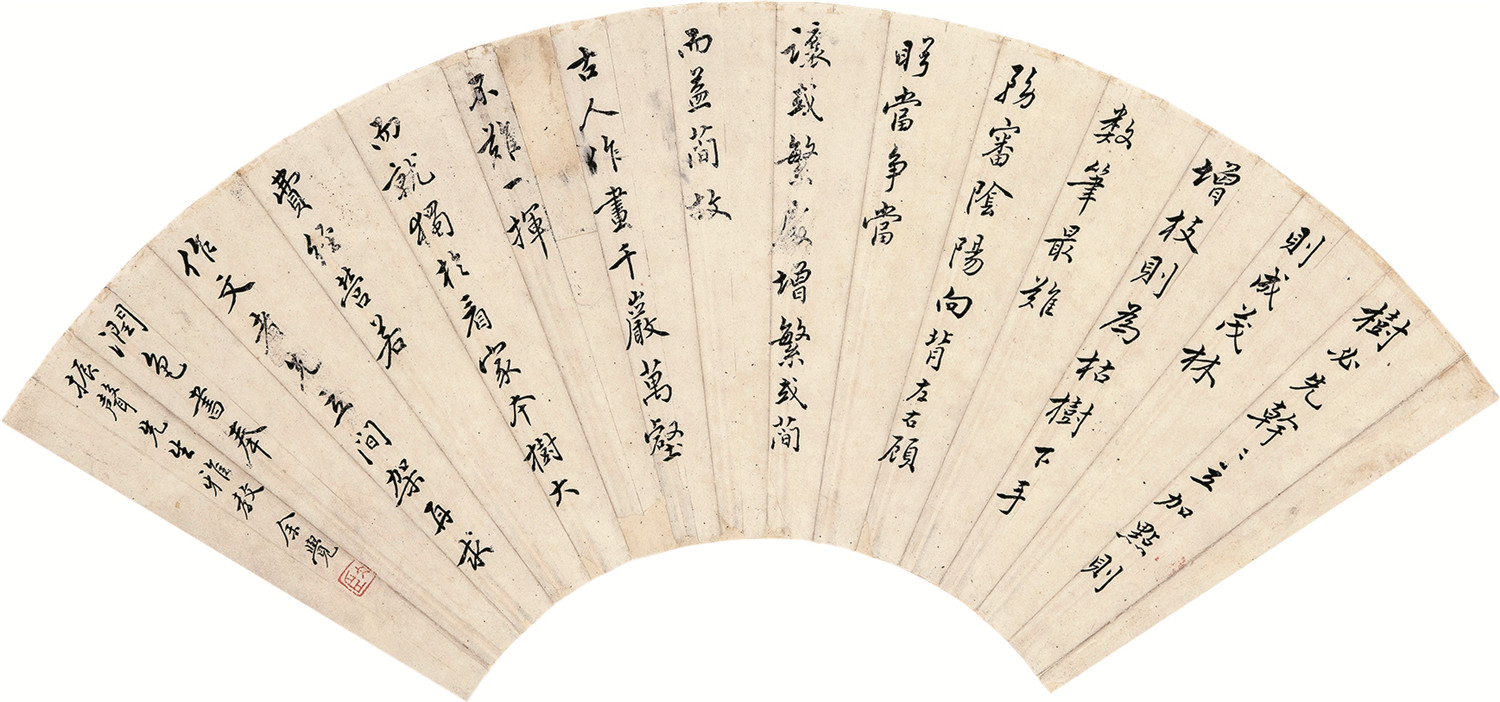 樹必先幹〻立加點則
則成茂林
增枝則為枯樹下手
数筆最難
務審陰陽向背左右顧
盻當爭當
讓或繁處增繁或簡
而益簡故
古人作畫千巖萬壑
不難一揮
而就獨於看家本樹大
費經營若
作文者先立間架再求
潤色書奉
振聲先生雅教 余覺